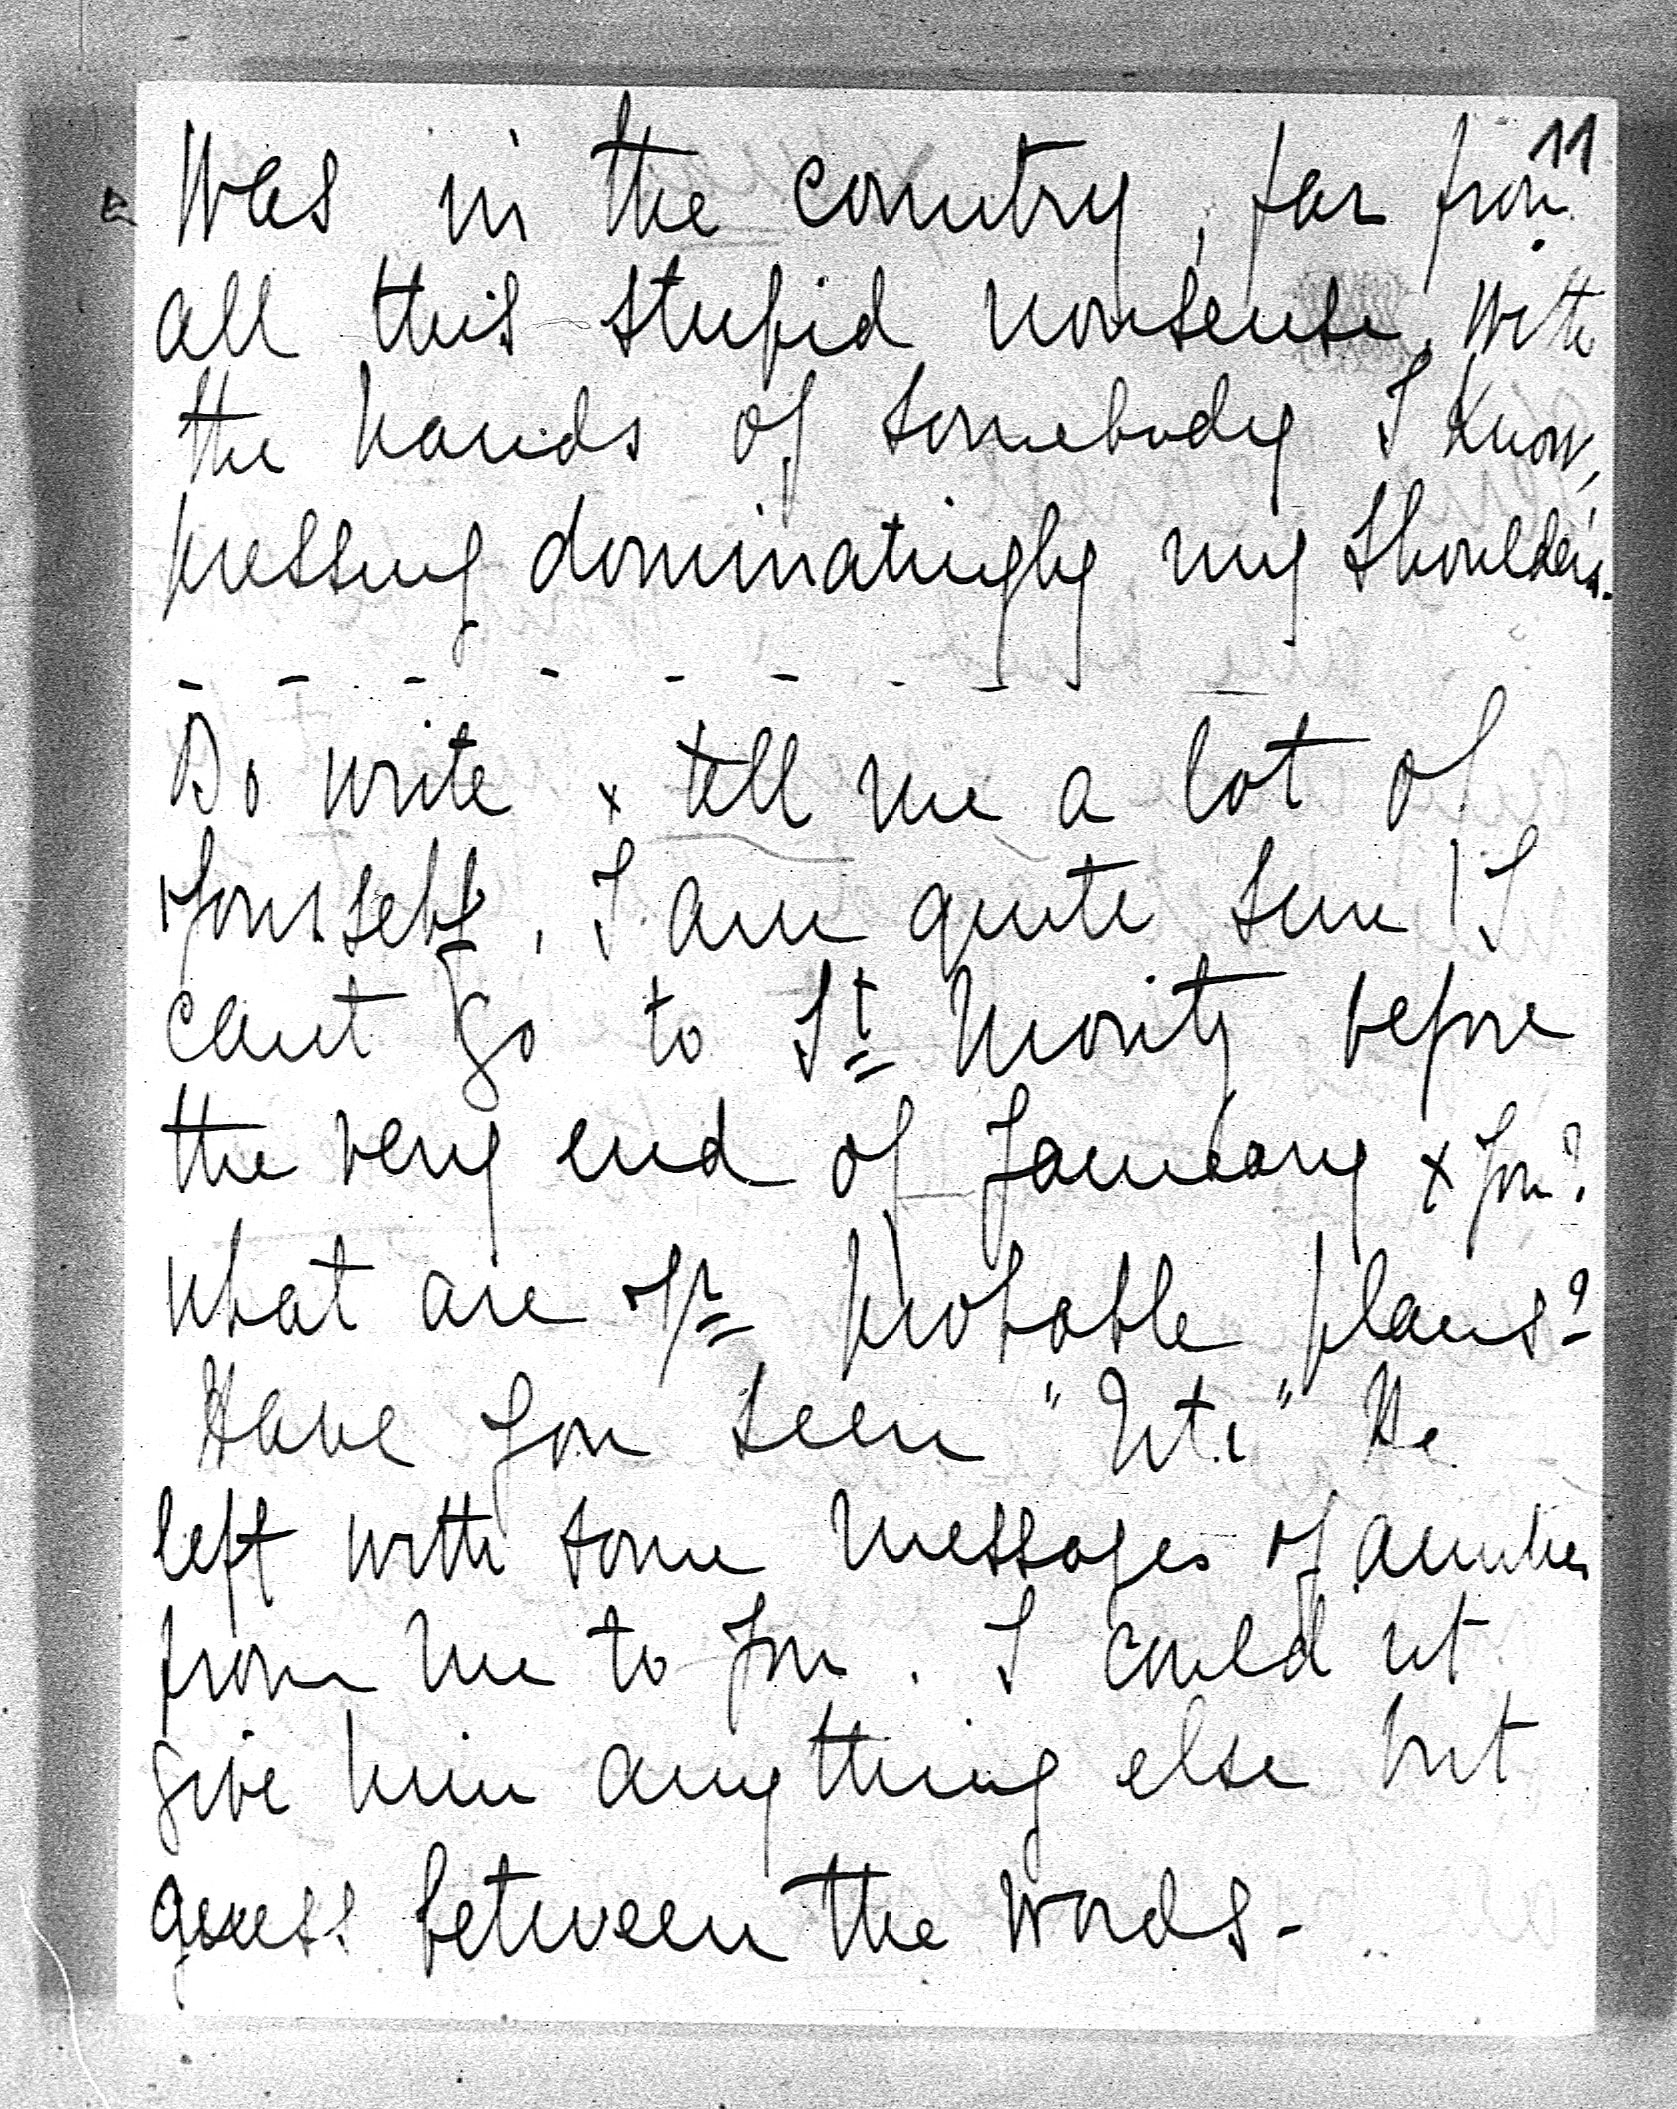 11
was in the country, far from
all this stupid nonsense, with
the hands of somebody I know,
pressing dominatingly my shoulders.
- - - - - - - - -
Do write x tell me a lot of
yourself. I am quite sure! I
cant go to St Moritz before
the very end of January x you?
what are yr probable plans?
Have you seen " " He
left with some messages of
from me to you. I could nt
give him anything else but
guess between the words-